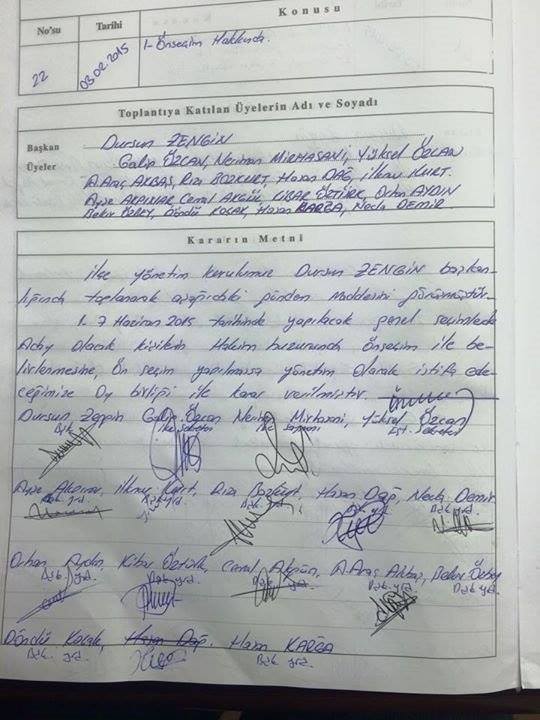 Konusu
No'su Tarihi
22 03.02.2015 1- Önseçim Hakkında.
Toplantıya Katılan Üyelerin Adı ve Soyadı
Başkan Dursun ZENGİN
Üyeler Galip ÖZCAN, Neriman MİRHASANİ, Yüksel ÖZCAN
A.Araş AKBAŞ, Rıza BOZKURT, Hasan DAĞ, İlknur KURT.
Ayşe AKPINAR, Cemal AKGÜL, KİBAR ÖZTÜRK, Orhan AYDIN
Bekir ÖZBEY, Döndü KOÇAK, Hasan KARĞA, Necla DEMİR
Kararın Metni
İlçe yönetim kurulumuz Dursun ZENGİN başkan-
lığında toplanarak aşağıdaki gündem maddesini görüşmüştür.
1. 7 Haziran 2015 tarihinde yapılacak genel seçimlerde
Aday olacak kişilerin Hakim huzurunda Önseçim ile be-
lirlenmesine, Ön seçim yapılmassa yönetim Olarak istifa ede-
ceğimize Oy birliği ile karar verilmiştir.
Dursun Zengin Galip Özcan Neriman Mirhasani, Yüksel Özcan
İlçe Sekreter İlçe Saymanı Eğt. Sekreter
Ayşe Akpınar, İlknur Kurt, Rıza Bozkurt, Hasan Dağ, Necla Demir
Bşk. yrd. Bşk. yrd. Bşk. yrd. Bşk. yrd. Bşk. yrd.
Orhan Aydın, Kibar Öztürk, Cemal Akgün, A.Araş Akbaş, Bekir Özbey
Bşk. yrd. Bşk. yrd. Bşk. yrd. Bşk. yrd. Bşk. yrd.
Döndü Koçak, Hasan Dağ, Hasan KARĞA
Bşk. yrd. Bşk. yrd.